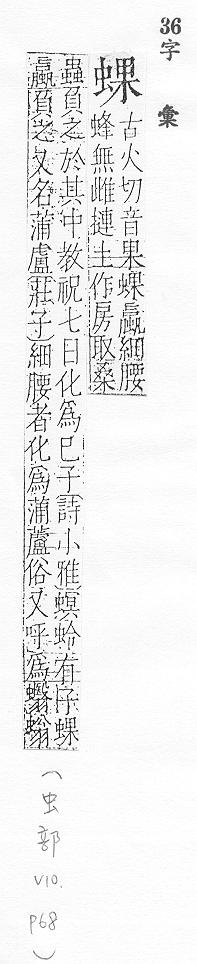 36字彙
蜾 古火切音果蜾蠃細腰
蜂無雌摙土作房取桑
蟲負之於其中教祝七日化為巳子(詩小雅)螟蛉有子蜾
蠃負之又名蒲盧(莊子)細腰者化(為蒲蘆俗又呼為蠮螉
(虫部
V10.
P68
)